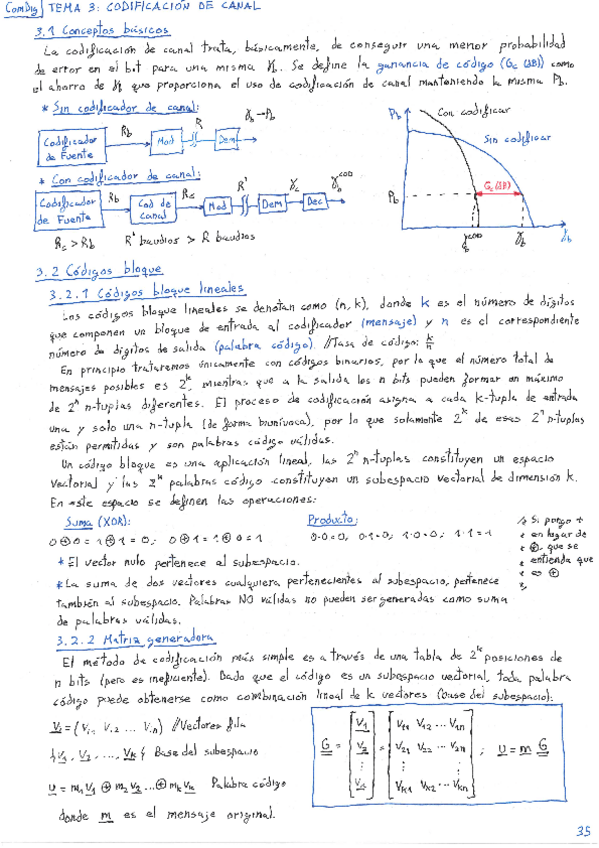 ComDig TEMA 3: CODIFICACIÓN DE CANAL
3.1 Conceptos básicos
La codificación de canal trata, básicamente, de conseguir una menor probabilidad
de error en el bit para una misma γb. Se define la ganancia de código (Gc (dB)) como
el ahorro de γb que proporciona el uso de codificación de canal manteniendo la misma Pb.
* Sin codificador de canal:
γb → Pb
Codificador de Fuente
Rb
Mod
R
Dem
* Con codificador de canal:
Codificador de Fuente
Rb
Cod de canal
Rc
Mod
R'
Dem
γc
Dec
γb^cod
Rc > Rb
R' baudios > R baudios
Pb
Con codificar
Sin codificar
Pb
Gc (dB)
γb^cod
γb
γb
3.2 Códigos bloque
3.2.1 Códigos bloque lineales
Los códigos bloque lineales se denotan como (n, k), donde k es el número de dígitos
que componen un bloque de entrada al codificador (mensaje) y n es el correspondiente
número de dígitos de salida (palabra código). //Tasa de código: k/n
En principio trataremos únicamente con códigos binarios, por lo que el número total de
mensajes posibles es 2^k, mientras que a la salida los n bits pueden formar un máximo
de 2^n n-tuplas diferentes. El proceso de codificación asigna a cada k-tupla de entrada
una y solo una n-tupla (de forma biunívoca), por lo que solamente 2^k de esas 2^n n-tuplas
están permitidas y son palabras código válidas.
Un código bloque es una aplicación lineal, las 2^n n-tuplas constituyen un espacio
vectorial y las 2^k palabras código constituyen un subespacio vectorial de dimensión k.
En este espacio se definen las operaciones:
Suma (XOR):
0⊕0 = 1⊕1 = 0; 0⊕1 = 1⊕0 = 1
Producto:
0·0=0, 0·1=0; 1·0=0; 1·1=1
// Si pongo +
en lugar de
⊕, que se
entienda que
es ⊕
* El vector nulo pertenece al subespacio.
* La suma de dos vectores cualquiera pertenecientes al subespacio, pertenece
también al subespacio. Palabras NO válidas no pueden ser generadas como suma
de palabras válidas.
3.2.2 Matriz generadora
El método de codificación más simple es a través de una tabla de 2^k posiciones de
n bits (pero es ineficiente). Dado que el código es un subespacio vectorial, toda palabra
código puede obtenerse como combinación lineal de k vectores (base del subespacio):
Vi = (Vi1 Vi2 ... Vin) //Vectores fila
{V1, V2, ..., Vk} Base del subespacio
u = m1V1 ⊕ m2V2 ... ⊕ mkVk Palabra código
donde m es el mensaje original.
G = [V1 V2 ⋮ Vk] = [V11 V12 ... V1n
V21 V22 ... V2n
⋮
Vk1 Vk2 ... Vkn] ; u = m G
35